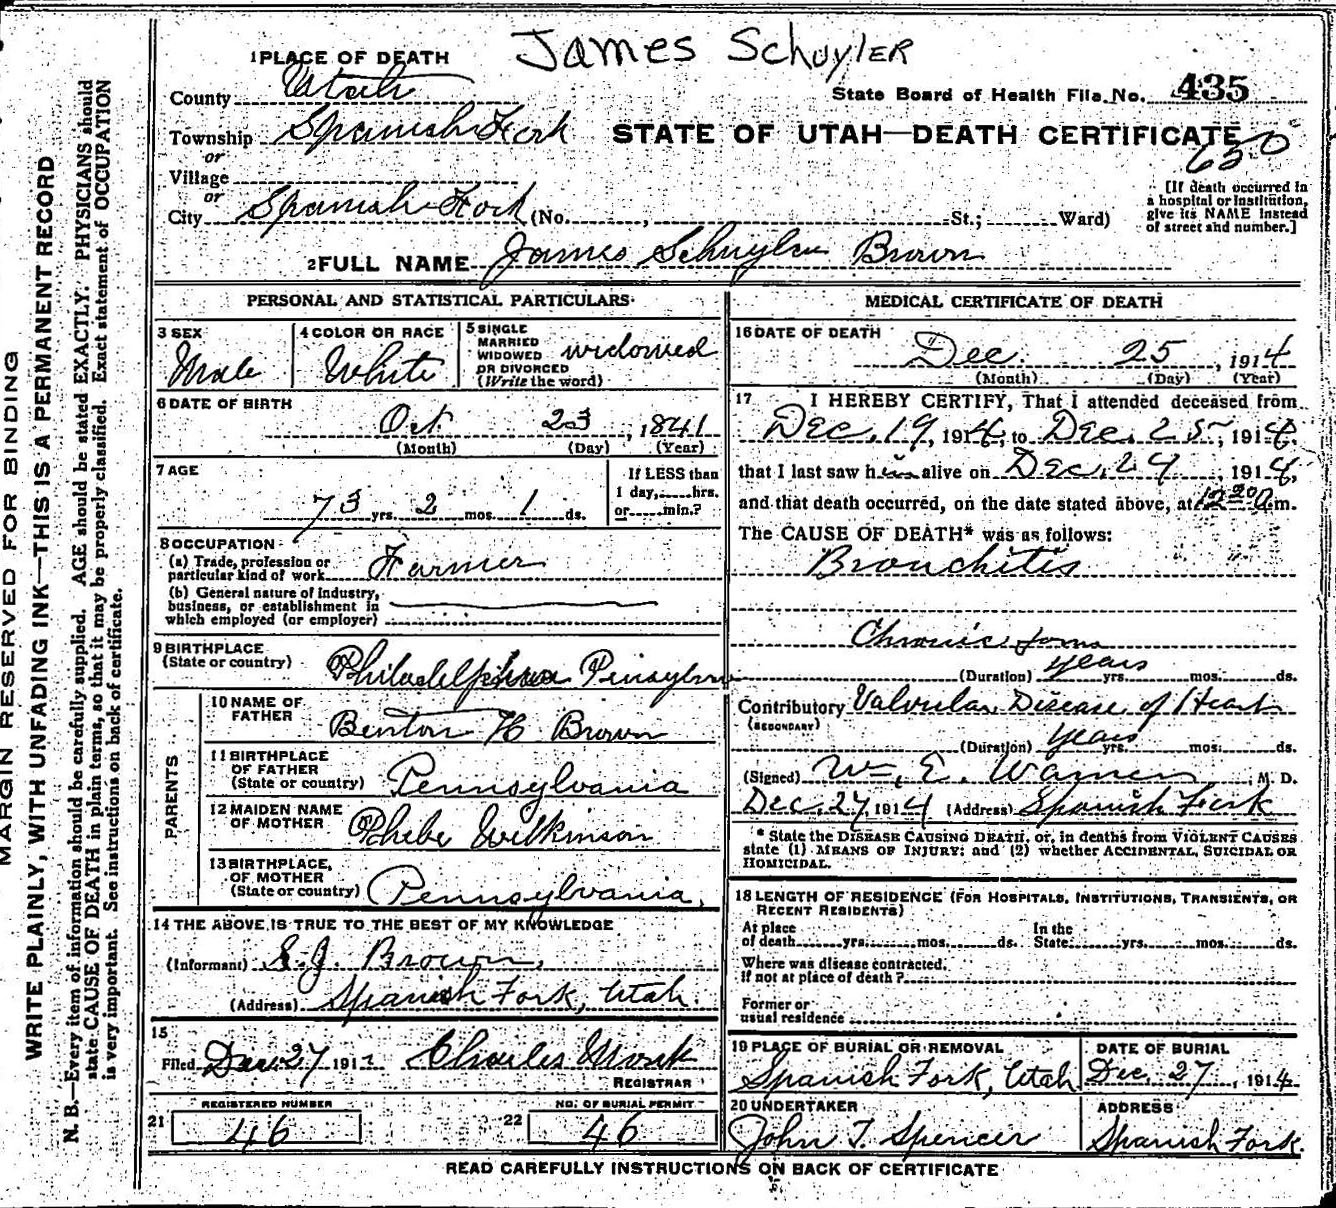 James Schuyler
1 PLACE OF DEATH
County Utah
State Board of Health File No. 435
Township Spanish Fork
STATE OF UTAH—DEATH CERTIFICATE
or
Village
or
City Spanish Fork (No. , St.; Ward)
[If death occurred in
a hospital or institution,
give its NAME instead
of street and number.]
2 FULL NAME James Schuyler Brown
PERSONAL AND STATISTICAL PARTICULARS
3 SEX
Male
4 COLOR OR RACE
White
5 SINGLE
MARRIED
WIDOWED
OR DIVORCED
(Write the word)
widowed
6 DATE OF BIRTH
Oct. 23, 1841
(Month) (Day) (Year)
7 AGE
73 yrs. 2 mos. 1 ds.
If LESS than
1 day, hrs.
or min.?
8 OCCUPATION
(a) Trade, profession or
particular kind of work Farmer
(b) General nature of industry,
business, or establishment in
which employed (or employer)
9 BIRTHPLACE
(State or country)
Philadelphia
PARENTS
10 NAME OF
FATHER
Benton H Brown
11 BIRTHPLACE
OF FATHER
(State or country)
Pennsylvania
12 MAIDEN NAME
OF MOTHER
Phebe Wilkinson
13 BIRTHPLACE,
OF MOTHER
(State or country)
Pennsylvania,
14 THE ABOVE IS TRUE TO THE BEST OF MY KNOWLEDGE
(Informant) S.J. Brown,
(Address) Spanish Fork, Utah.
15
Filed Dec 27 191 Charles Monk
REGISTRAR
REGISTERED NUMBER
21 46
NO. OF BURIAL PERMIT
22 46
MEDICAL CERTIFICATE OF DEATH
16 DATE OF DEATH
Dec. 25, 1914
(Month) (Day) (Year)
17 I HEREBY CERTIFY, That I attended deceased from
Dec. 19, 1914, to Dec. 25, 1914,
that I last saw him alive on Dec. 24, 1914,
and that death occurred, on the date stated above, at 12 20 a.m.
The CAUSE OF DEATH* was as follows:
Bronchitis
Chronic form
years
(Duration) yrs. mos. ds.
Contributory Valvular Disease of Heart
(SECONDARY)
years
(Duration) yrs. mos. ds.
(Signed) Wm. E. Warner, M. D.
Dec. 27, 1914 (Address) Spanish Fork
* State the DISEASE CAUSING DEATH, or, in deaths from VIOLENT CAUSES
state (1) MEANS OF INJURY; and (2) whether ACCIDENTAL, SUICIDAL OR
HOMICIDAL.
18 LENGTH OF RESIDENCE (FOR HOSPITALS, INSTITUTIONS, TRANSIENTS, OR
RECENT RESIDENTS)
At place
of death yrs. mos. ds.
In the
State yrs. mos. ds.
Where was disease contracted,
if not at place of death?
Former or
usual residence
19 PLACE OF BURIAL OR REMOVAL
Spanish Fork, Utah
DATE OF BURIAL
Dec. 27, 1914
20 UNDERTAKER
John T. Spencer
ADDRESS
Spanish Fork.
READ CAREFULLY INSTRUCTIONS ON BACK OF CERTIFICATE
MARGIN RESERVED FOR BINDING
WRITE PLAINLY, WITH UNFADING INK—THIS IS A PERMANENT RECORD
N. B.—Every item of information should be carefully supplied. AGE should be stated EXACTLY. PHYSICIANS should
state CAUSE OF DEATH in plain terms, so that it may be properly classified. Exact statement of OCCUPATION
is very important. See instructions on back of certificate.